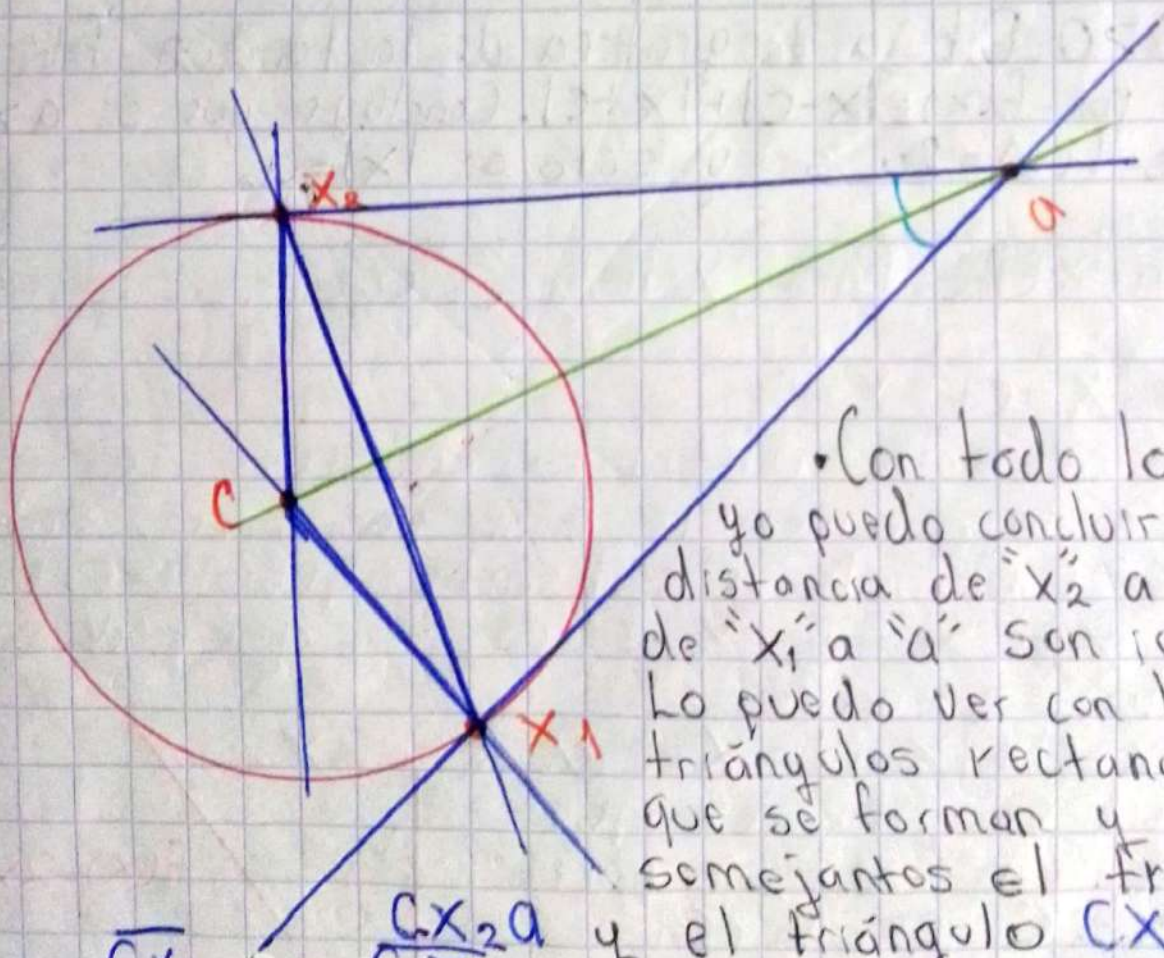 X₂
a
C
X1
•Con todo lo
yo puedo concluir
distancia de "x₂" a
de "x₁" a "a" son
Lo puedo ver con
triángulos
que se forman y
semejantes el
CX₂a y el triángulo CX